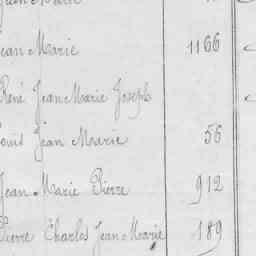 Jean Marie
Jean Marie 1166
René Jean Marie Joseph
Louis Jean Marie 56
Jean Marie Pierre 912
Pierre Charles Jean Marie 189